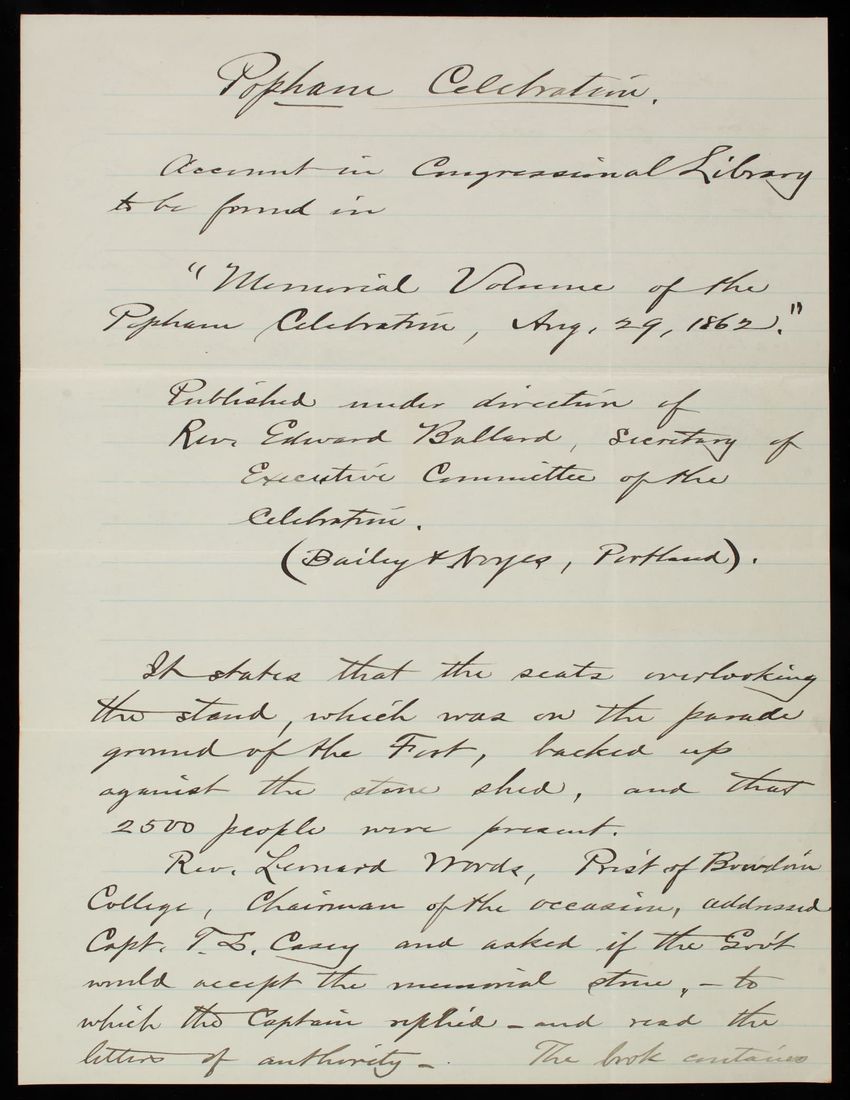 Popham Celebration.
Account in Congressional Library
to be found in
"Memorial Volume of the
Popham Celebration, Aug. 29, 1862."
Published under direction of
Rev. Edward Ballard, Secretary of
Executive Committee of the
Celebration.
(Bailey & Noyes, Portland).
It states that the seats overlooking
the stand, which was on the parade
ground of the Fort, backed up
against the stone shed, and that
2500 people were present.
Rev. Leonard Woods, Pres't of Bowdoin
College, Chairman of the occasion, addressed
Capt. T. L. Casey and asked if the Gov't
would accept the memorial stone, - to
which the Captain replied - and read the
letters of authority - . The book contains